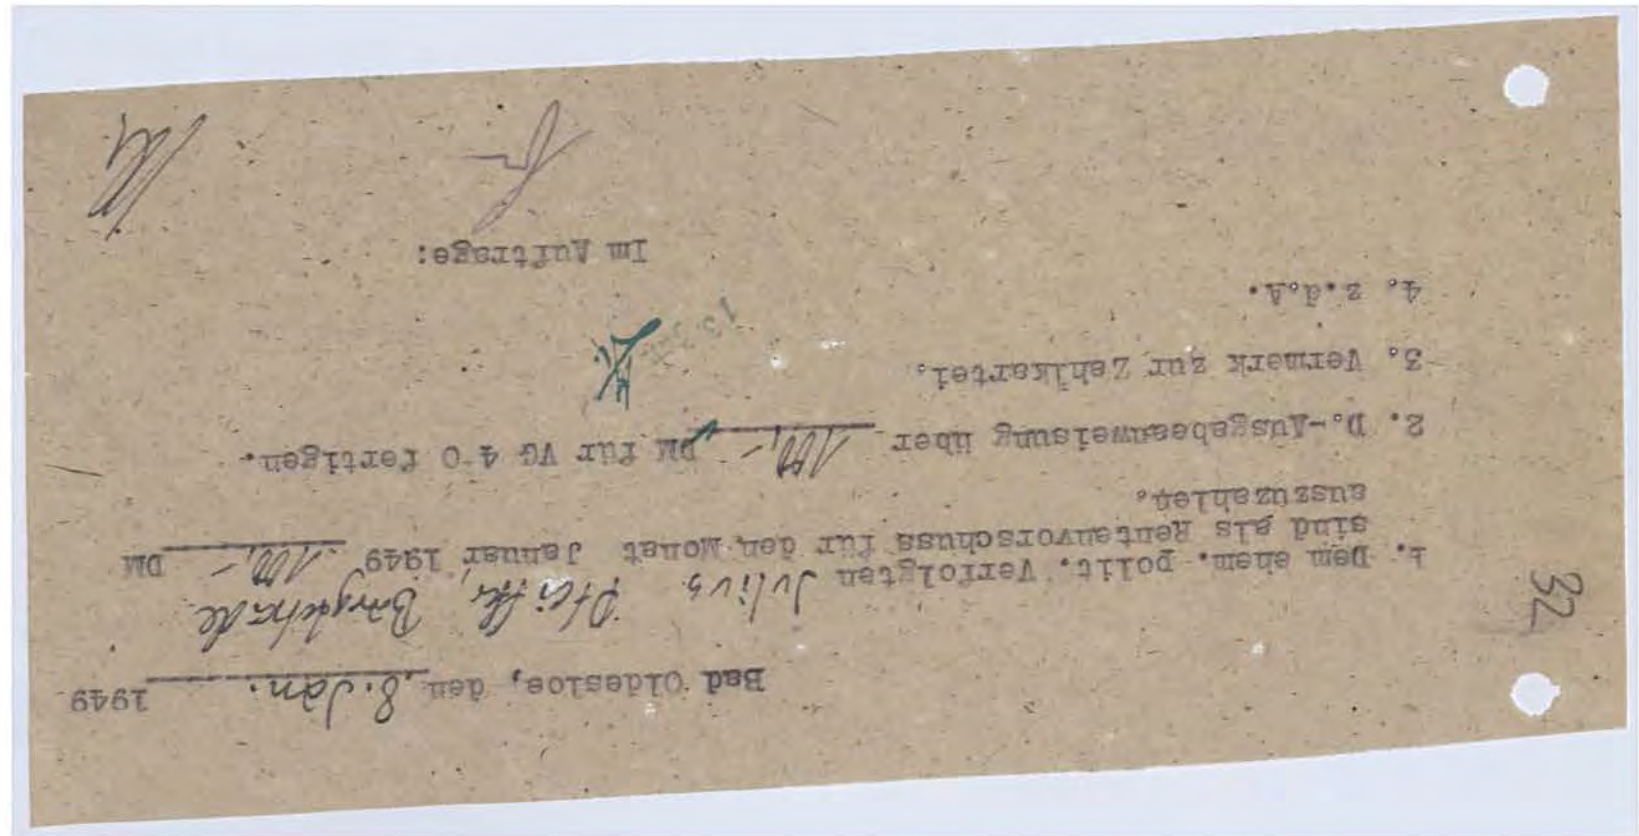 Bad Oldesloe, den 8. Jan. 1949
1. Dem ehem. polit. Verfolgten Julius Pfeiffer, Bargteheide
sind als Rentenvorschuss für den Monat Januar 1949 100,- DM
auszuzahlen.
2. D.-Ausgabeanweisung über 100,- DM für VG 4 0 fertigen.
3. Vermerk zur Zahlkartei.
4. z.d.A.
Im Auftrage:
32